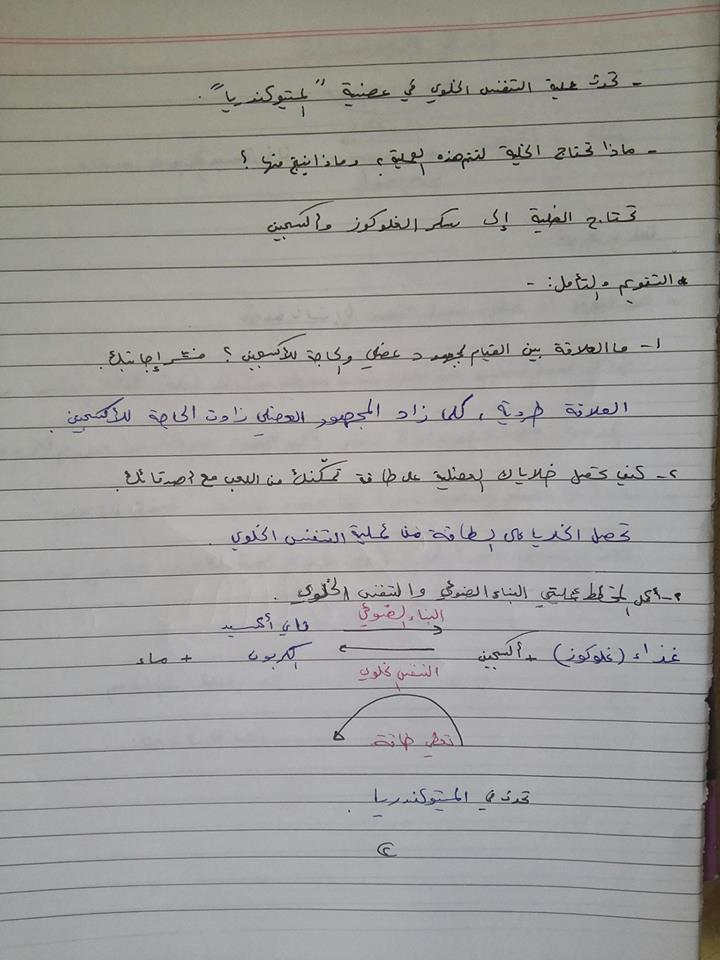 - تحدث عملية التنفس الخلوي في عضية "الميتوكندريا".
- ماذا تحتاج الخلية لتتم هذه العملية؟ وماذا ينتج منها؟
تحتاج الخلية إلى سكر الغلوكوز وأكسجين
* التقويم والتأمل: -
١- ما العلاقة بين القيام بمجهود عضلي والحاجة للأكسجين؟ فسّر إجابتك.
العلاقة طردية، كلما زاد المجهود العضلي زادت الحاجة للأكسجين.
٢- كيف تحصل خلاياك العضلية على طاقة تمكّنك من اللعب مع أصدقائك.
تحصل الخلايا على الطاقة من عملية التنفس الخلوي.
٣- أكمل المخطط عمليتي البناء الضوئي والتنفس الخلوي.
البناء الضوئي
غذاء (غلوكوز) + أكسجين ثاني أكسيد الكربون + ماء
التنفس الخلوي
تعطي طاقة
تحدث في الميتوكندريا.
٢